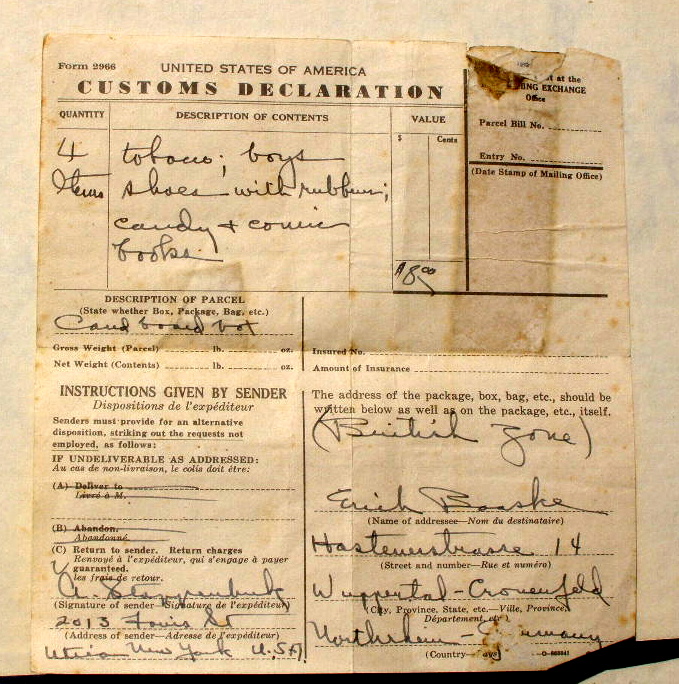 Form 2966
UNITED STATES OF AMERICA
CUSTOMS DECLARATION
QUANTITY
DESCRIPTION OF CONTENTS
VALUE
$ Cents
4 tobacco; boys
Items shoes with rubbers;
candy + comic
books.
$8.00
at the
EXCHANGE
Office
Parcel Bill No.
Entry No.
(Date Stamp of Mailing Office)
DESCRIPTION OF PARCEL
(State whether Box, Package, Bag, etc.)
Cardboard box
Gross Weight (Parcel) lb. oz.
Net Weight (Contents) lb. oz.
Insured No.
Amount of Insurance
INSTRUCTIONS GIVEN BY SENDER
Dispositions de l'expéditeur
Senders must provide for an alternative
disposition, striking out the requests not
employed, as follows:
IF UNDELIVERABLE AS ADDRESSED:
Au cas de non-livraison, le colis doit être:
(A) Deliver to
Livré à M.
(B) Abandon.
Abandonné.
(C) Return to sender. Return charges
Renvoyé à l'expéditeur, qui s'engage à payer
guaranteed.
les frais de retour.
A.
(Signature of sender—Signature de l'expéditeur)
2013 St
(Address of sender—Adresse de l'expéditeur)
Utica New York U.S.A.
The address of the package, box, bag, etc., should be
written below as well as on the package, etc., itself.
(British Zone)
Erich Baaske
(Name of addressee—Nom du destinataire)
14
(Street and number—Rue et numéro)
Wuppertal-Cronenfeld
(City, Province, State, etc.—Ville, Province,
Département, etc)
Northrhein - Germany
(Country—Pays)